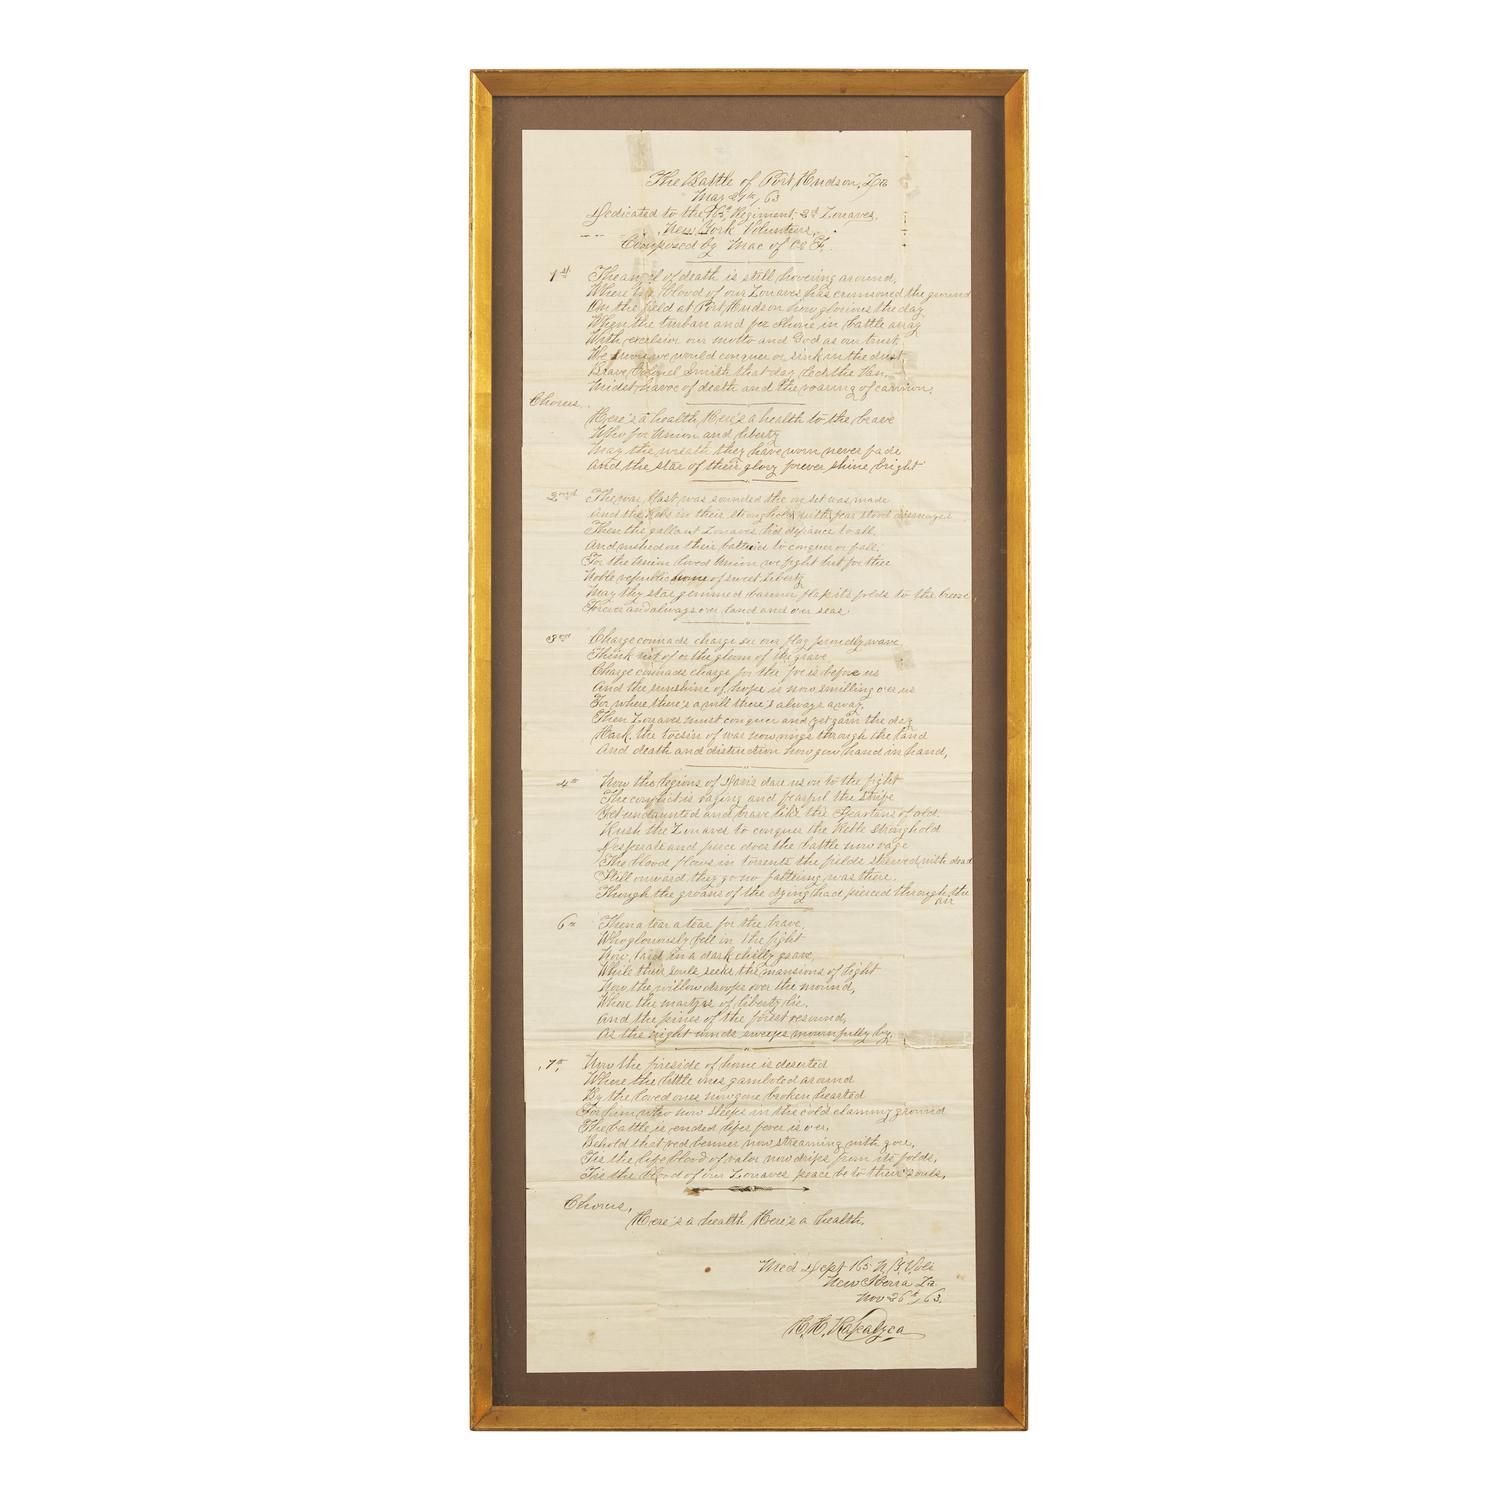 The Battle of Port Hudson, La
May 27th/63
Dedicated to the 165th Regiment 2d Zouaves,
New York Volunteers,
Composed by Mac of Co F.
1st The angel of death is still hovering around,
Where the blood of our Zouaves has crimsoned the ground
On the field at Port Hudson how glorious the day
When the turban and fez shone in battle array
With excelsior our motto and God as our trust
We swore we would conquer or sink in the dust
Brave Colonel Smith that day led the Van
Midst havoc of death and the roaring of cannon.
Chorus,
Here's a health Here's a health to the brave
Who for Union and liberty
May the wreath they have worn never fade
And the star of their glory forever shine bright
2ond The war blast was sounded the on set was made
And the Rebs in their stronghold with fear stood dismayed
Then the gallant Zouaves bid defiance to all
And rushed on their batteries to conquer or fall.
For the Union loved Union we fight but for thee
Noble republic home of sweet liberty
May thy star gemmed banner flap its folds to the breeze
Forever and always o'er land and o'er seas
3rd Charge comrads charge see our flag proudly wave
Think not of or the gloom of the grave
Charge comrads charge for the foe is before us
And the sunshine of hope is now smilling o'er us
For where there's a will there's always a way,
Then Zouaves must conquer and yet gain the day
Hark, the tocsin of war now rings through the land
And death and distruction now goes hand in hand,
4th Now the legions of Davis dare us on to the fight
The conflict is raging and fearful the strife
Yet undaunted and brave like the Spartans of old.
Rush the Zouaves to conquer the Reble stronghold
Desperate and fierce does the battle now rage
The blood flows in torrents the fields strewed with dead
Still onward they go no faltering was there.
Though the groans of the dying had pierced through the
air
6th Then a tear a tear for the brave,
Who gloriously fell in the fight
Now laid in a dark chilly grave,
While their souls seek the mansions of light
Now the willow droops over the mound,
Where the martyrs of liberty lie.
And the pines of the forest resound,
As the night winds sweeps mournfully by.
7th Now the fireside of home is deserted
Where the little ones gamboled around
By the loved ones now gone broken hearted
For him who now sleeps in the cold clammy ground
The battle is ended lifes fever is o'er,
Behold that red banner now streaming with gore,
Tis the life blood of valor now drips from its folds,
Tis the blood of our Zouaves peace be to their souls,
Chorus,
Here's a health Here's a health,
Med Dept 165 N.Y. Vols
New Iberia La
Nov 26th/63.
H. H.